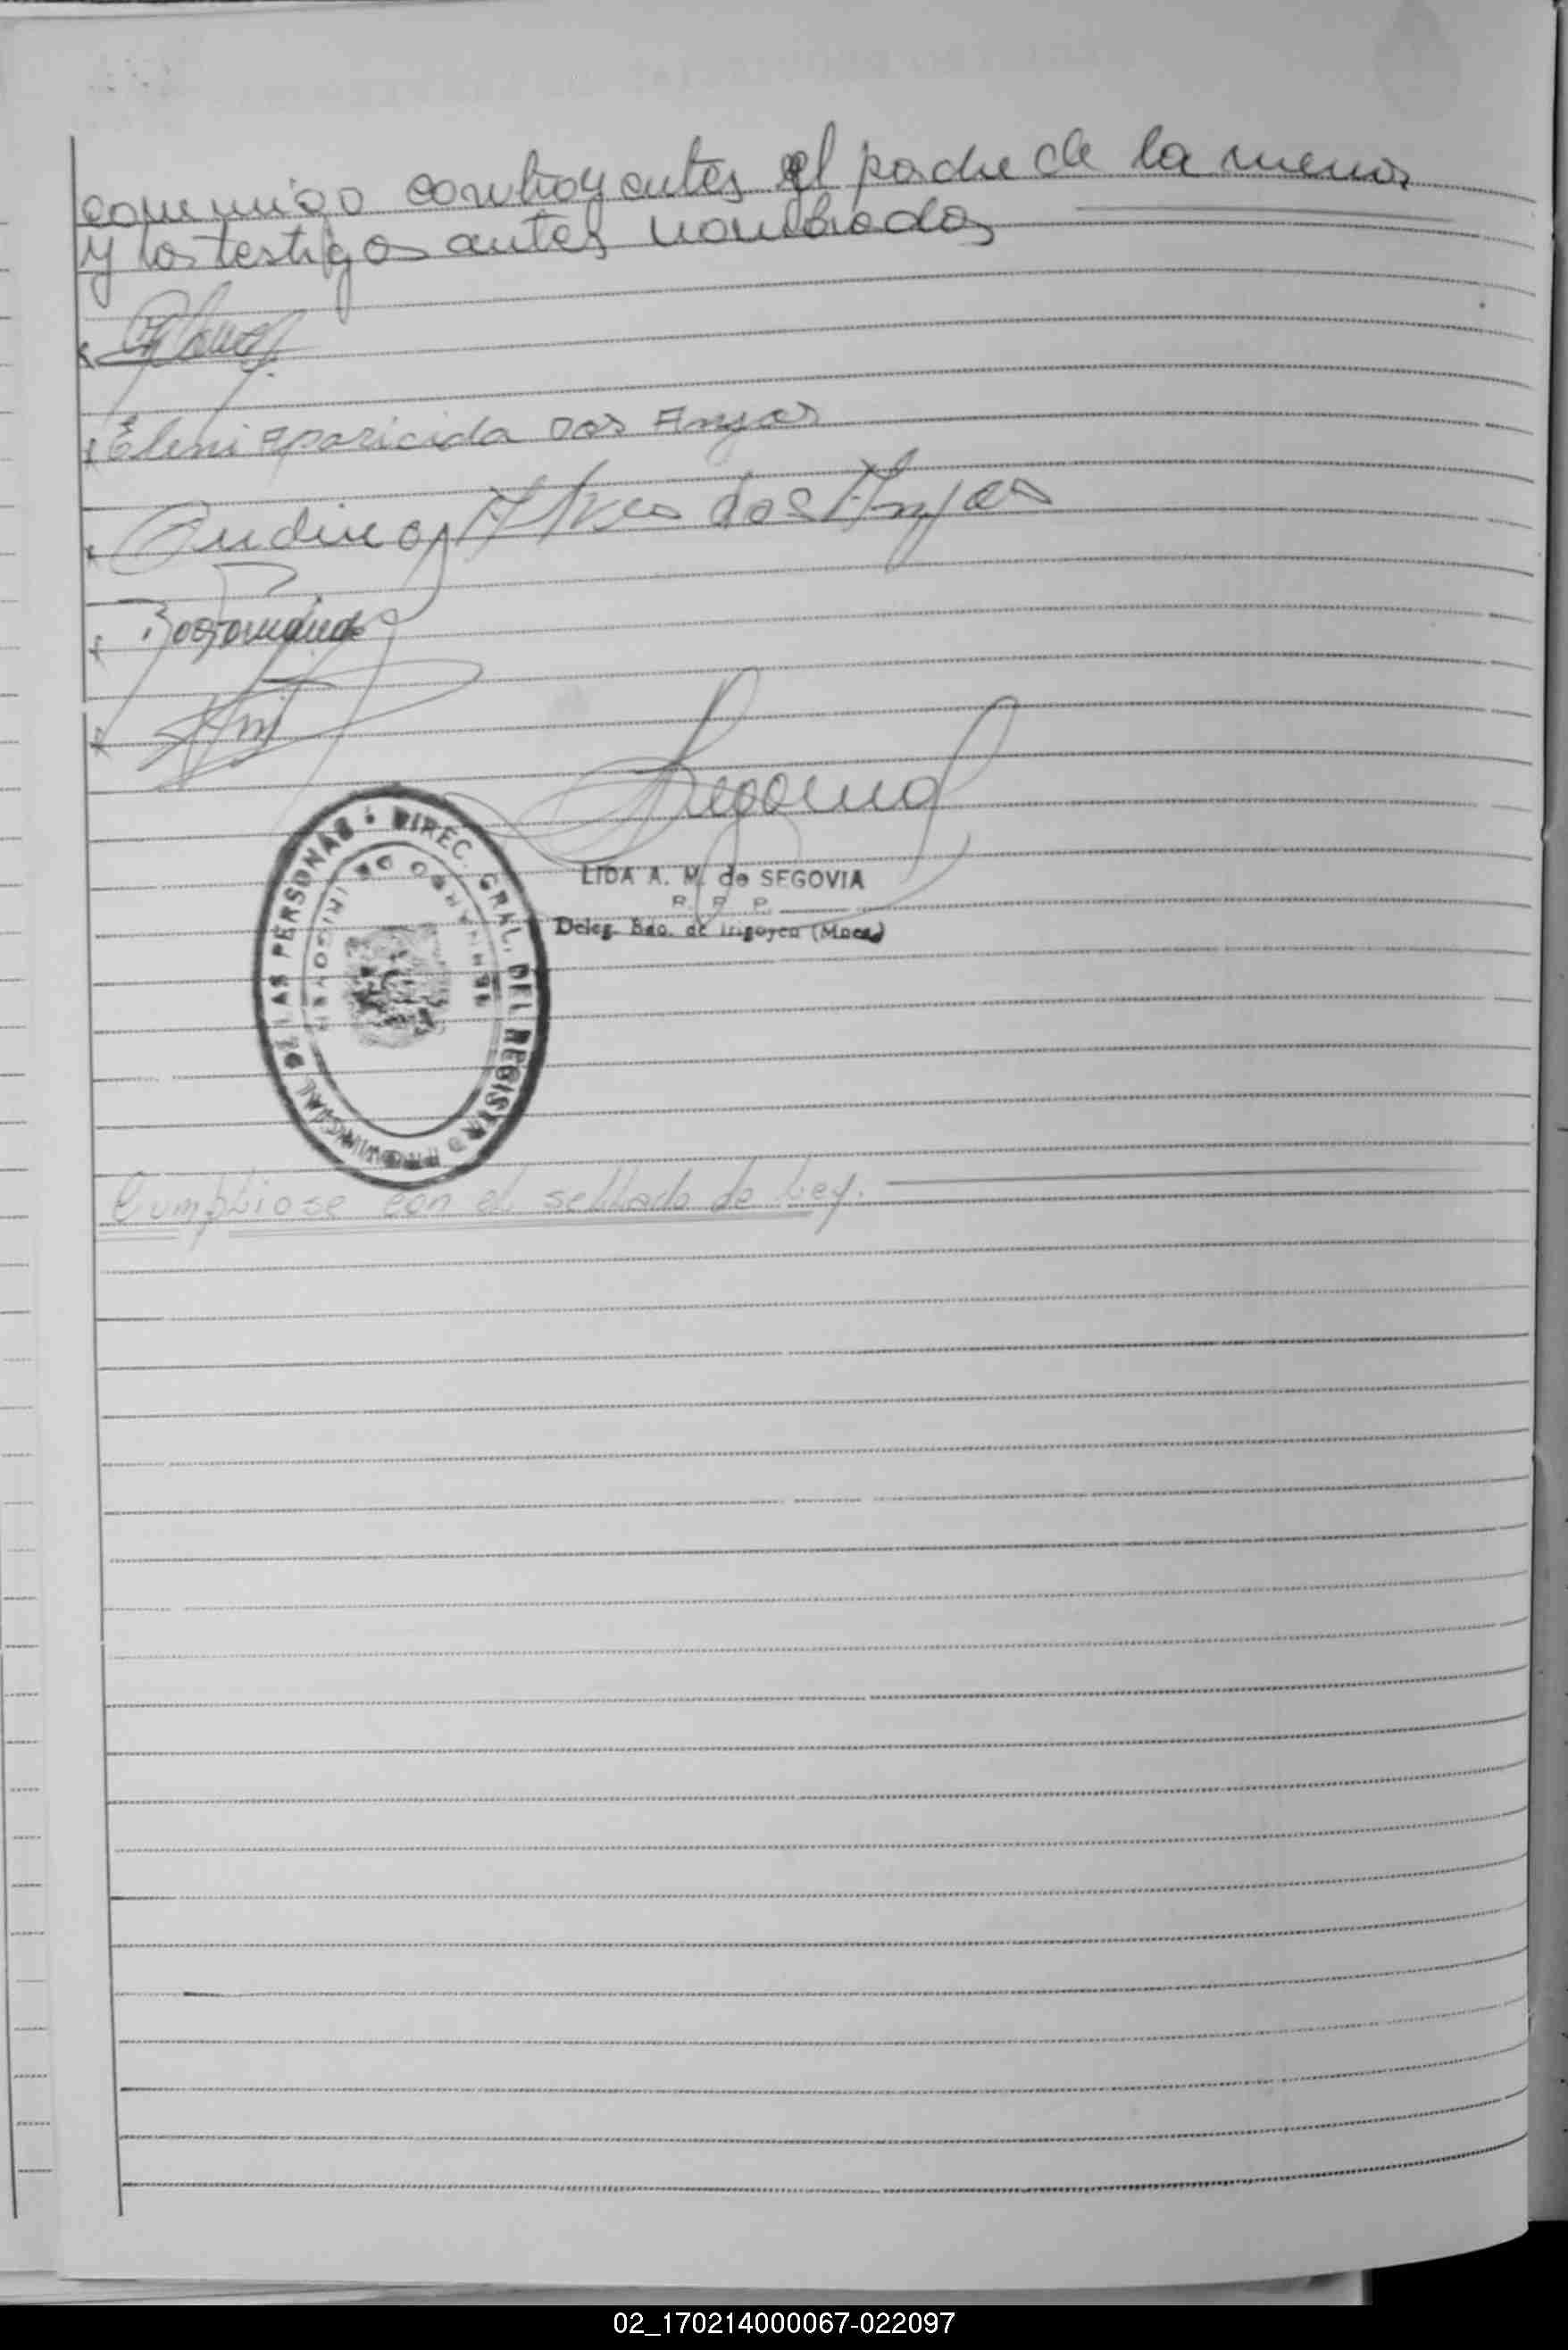 conmigo contrayentes el padre de la menor
y los testigos antes nombrados
Eleni Aparicida dos Anjos
Alves dos Anjos
Segovia
LIDA A. M. de SEGOVIA
R. P. P.
Deleg. Bdo. de Irigoyen (Mnes)
DIREC. GRAL. DEL REGISTRO PROVINCIAL DE LAS PERSONAS
BERNARDO DE IRIGOYEN
Cumpliose con el sellado de Ley.
02_170214000067-022097